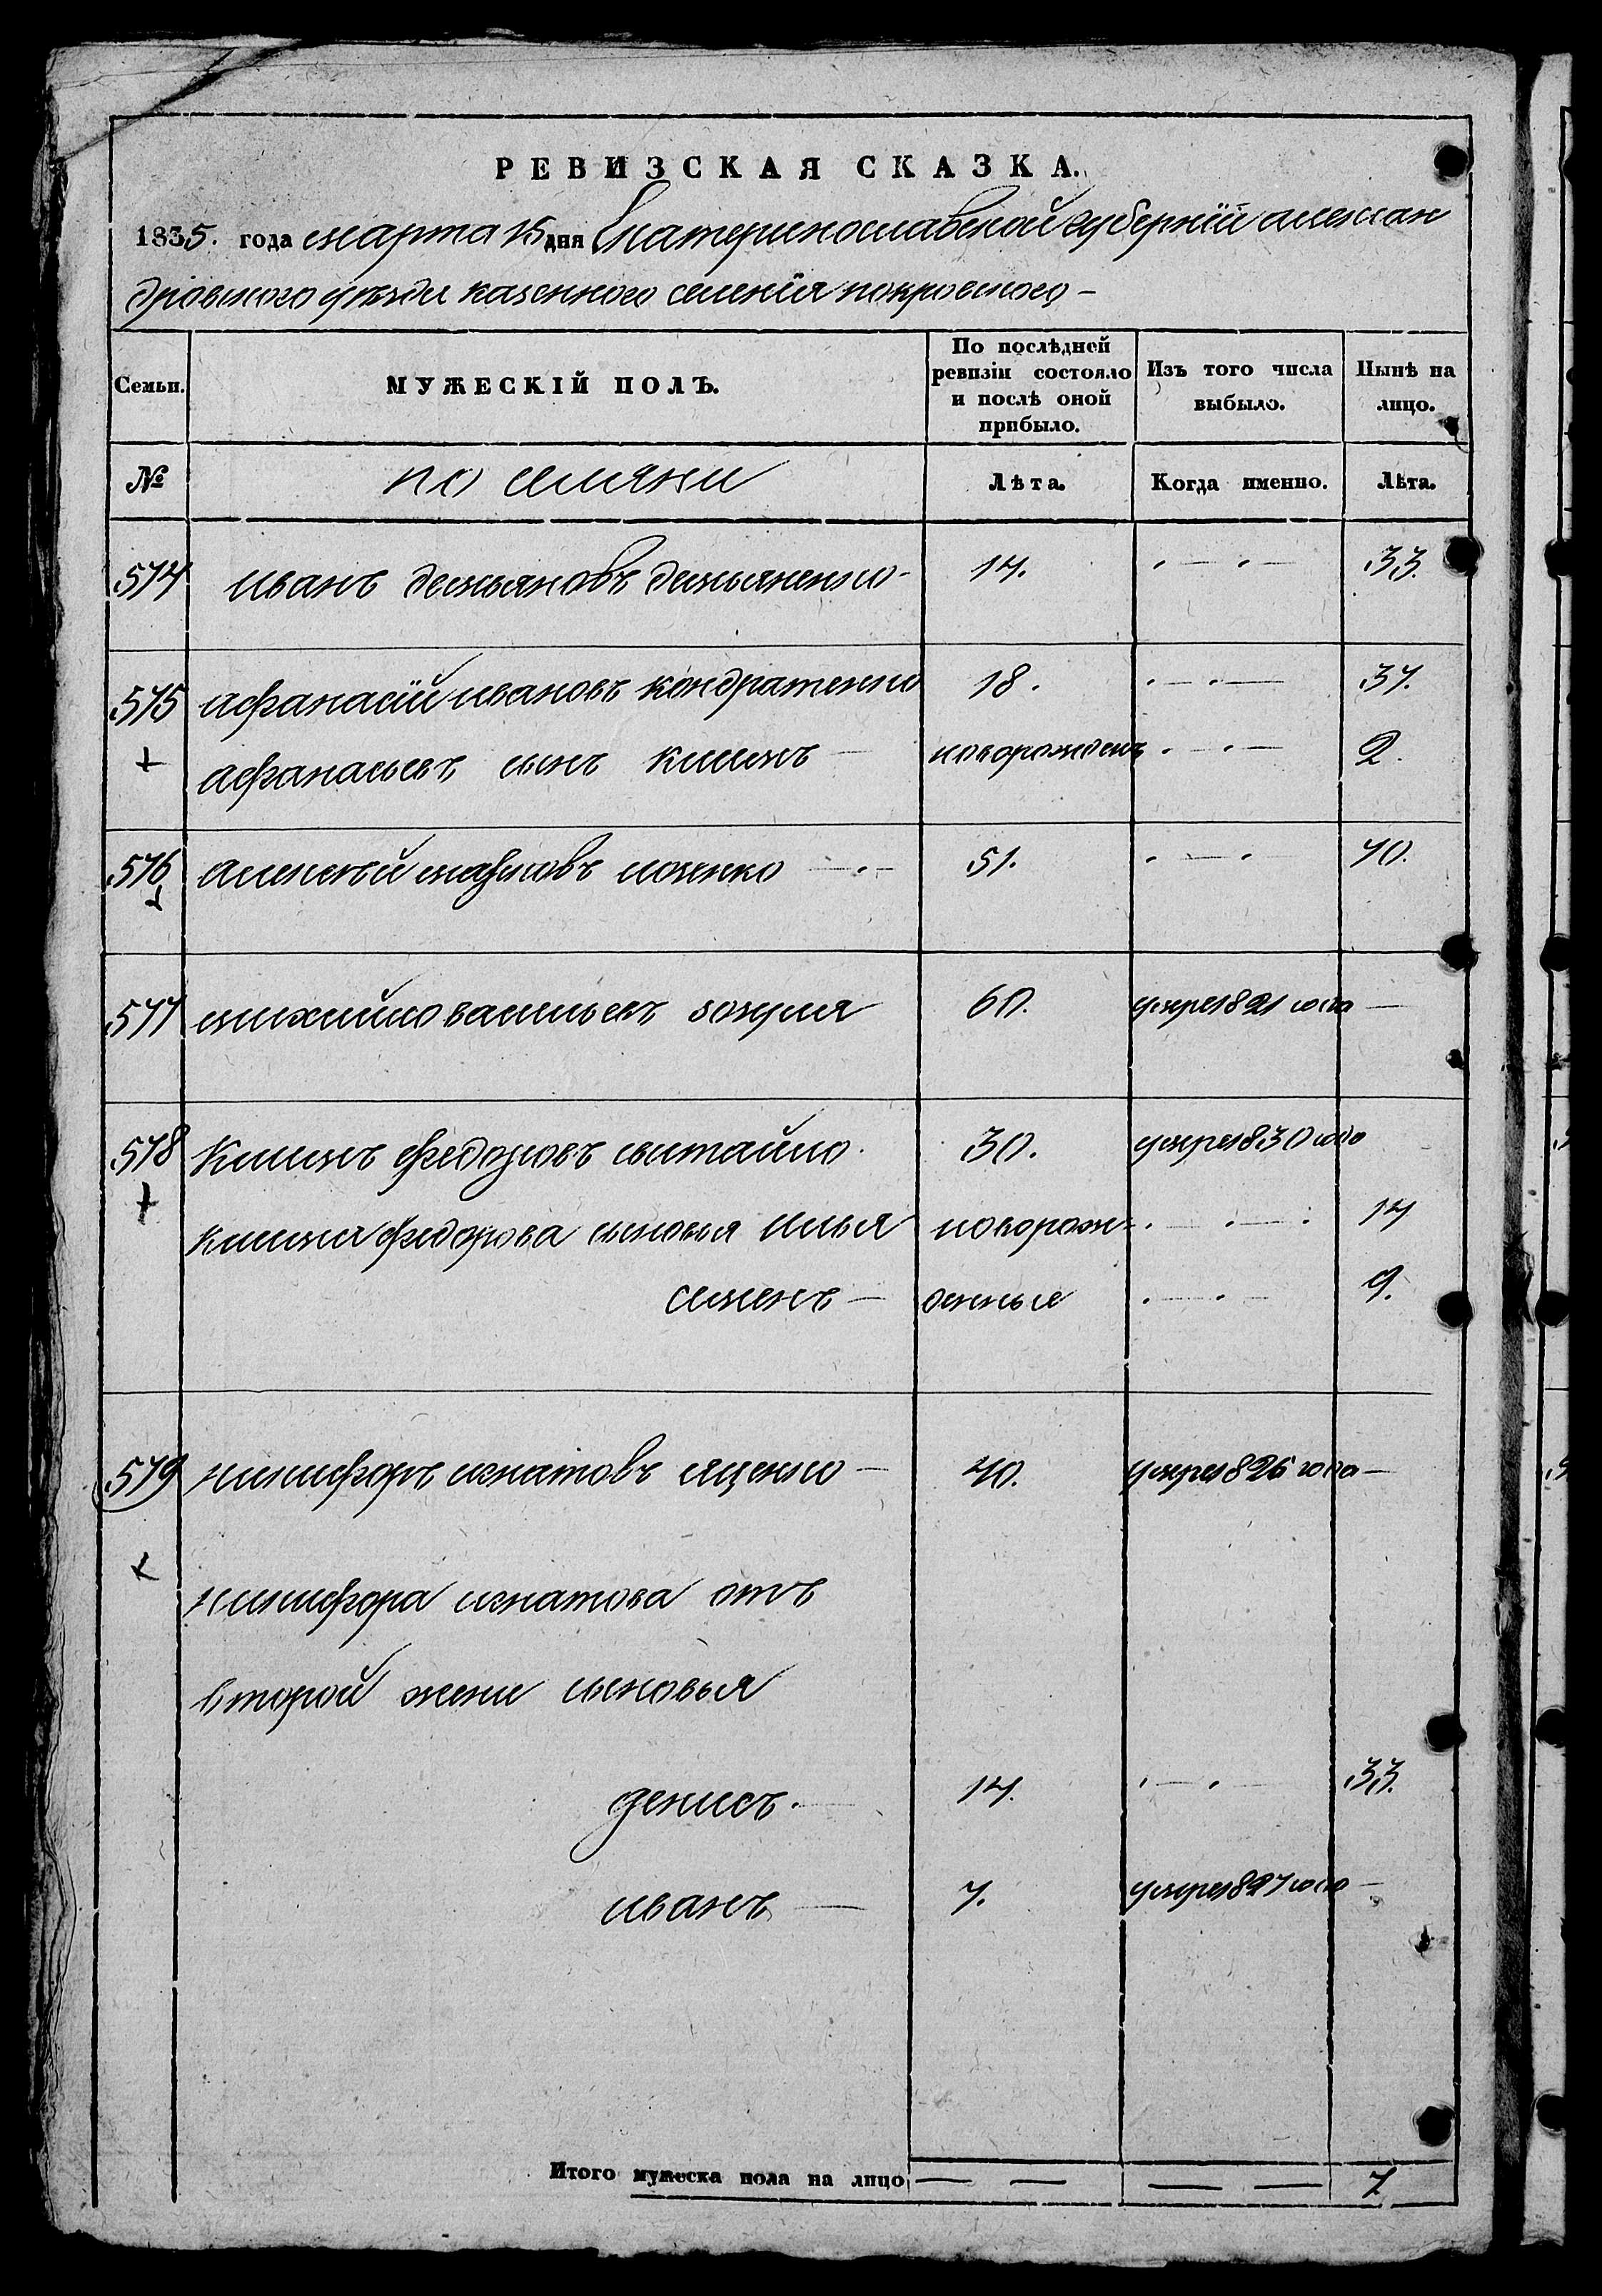 РЕВИЗСКАЯ СКАЗКА.
1835. года марта 15 дня Екатеринославской губернїй алексан
дровского уѣзда казенного селенїя покровского –
Семьи.
МУЖЕСКІЙ ПОЛЪ.
По послѣдней ревизіи состояло и послѣ оной прибыло.
Изъ того числа выбыло.
Нынѣ на лицо.
№
Лѣта.
Когда именно.
Лѣта.
574 иванъ демьяновъ демьяненко 14. 33.
575 афанасїй ивановъ кондратенко 18. 37.
+ афанасьевъ сынъ климъ новорожденъ 2.
576 алексѣй марковъ 51. 70.
577 михайло васильевъ зозуля 60. умре 1821 года —
578 климъ федоровъ свитайло 30. умре 1830 года
+ клима федорова сыновья илья новорож= 14
семенъ — денные 9.
579 никифоръ игнатовъ яценко — 70. умре 1826 года —
никифора игнатова отъ
второй жени сыновья
денисъ. 14. 33.
иванъ 7. умре 1827 года —
Итого мужеска пола на лицо 7